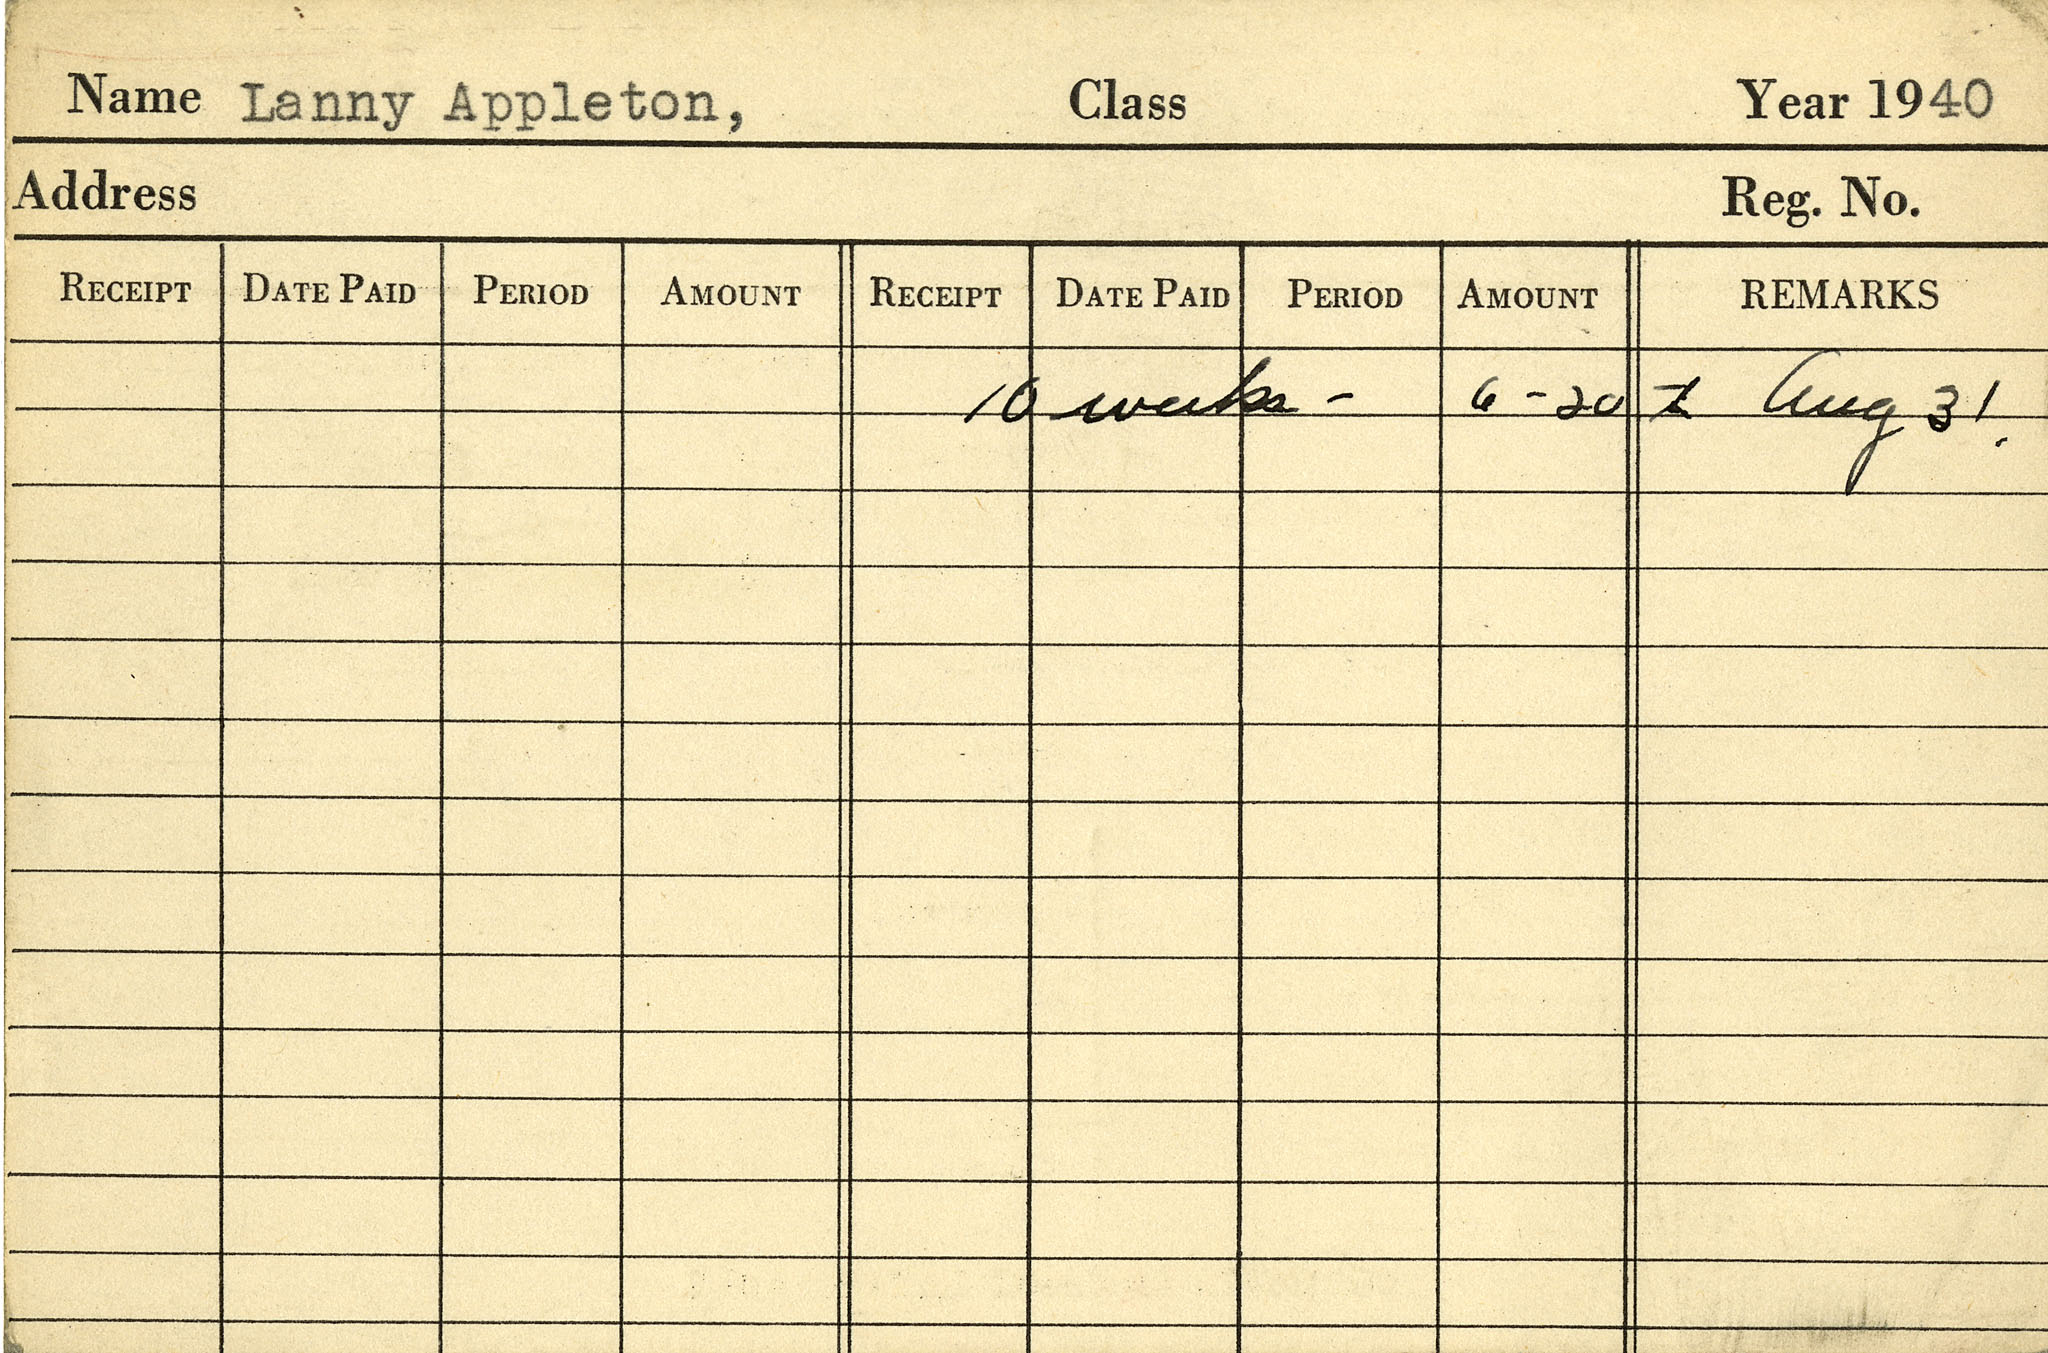 Name Lanny Appleton, Class Year 1940
Address Reg. No.
RECEIPT DATE PAID PERIOD AMOUNT RECEIPT DATE PAID PERIOD AMOUNT REMARKS
10 weeks - 6-20 to Aug 31.